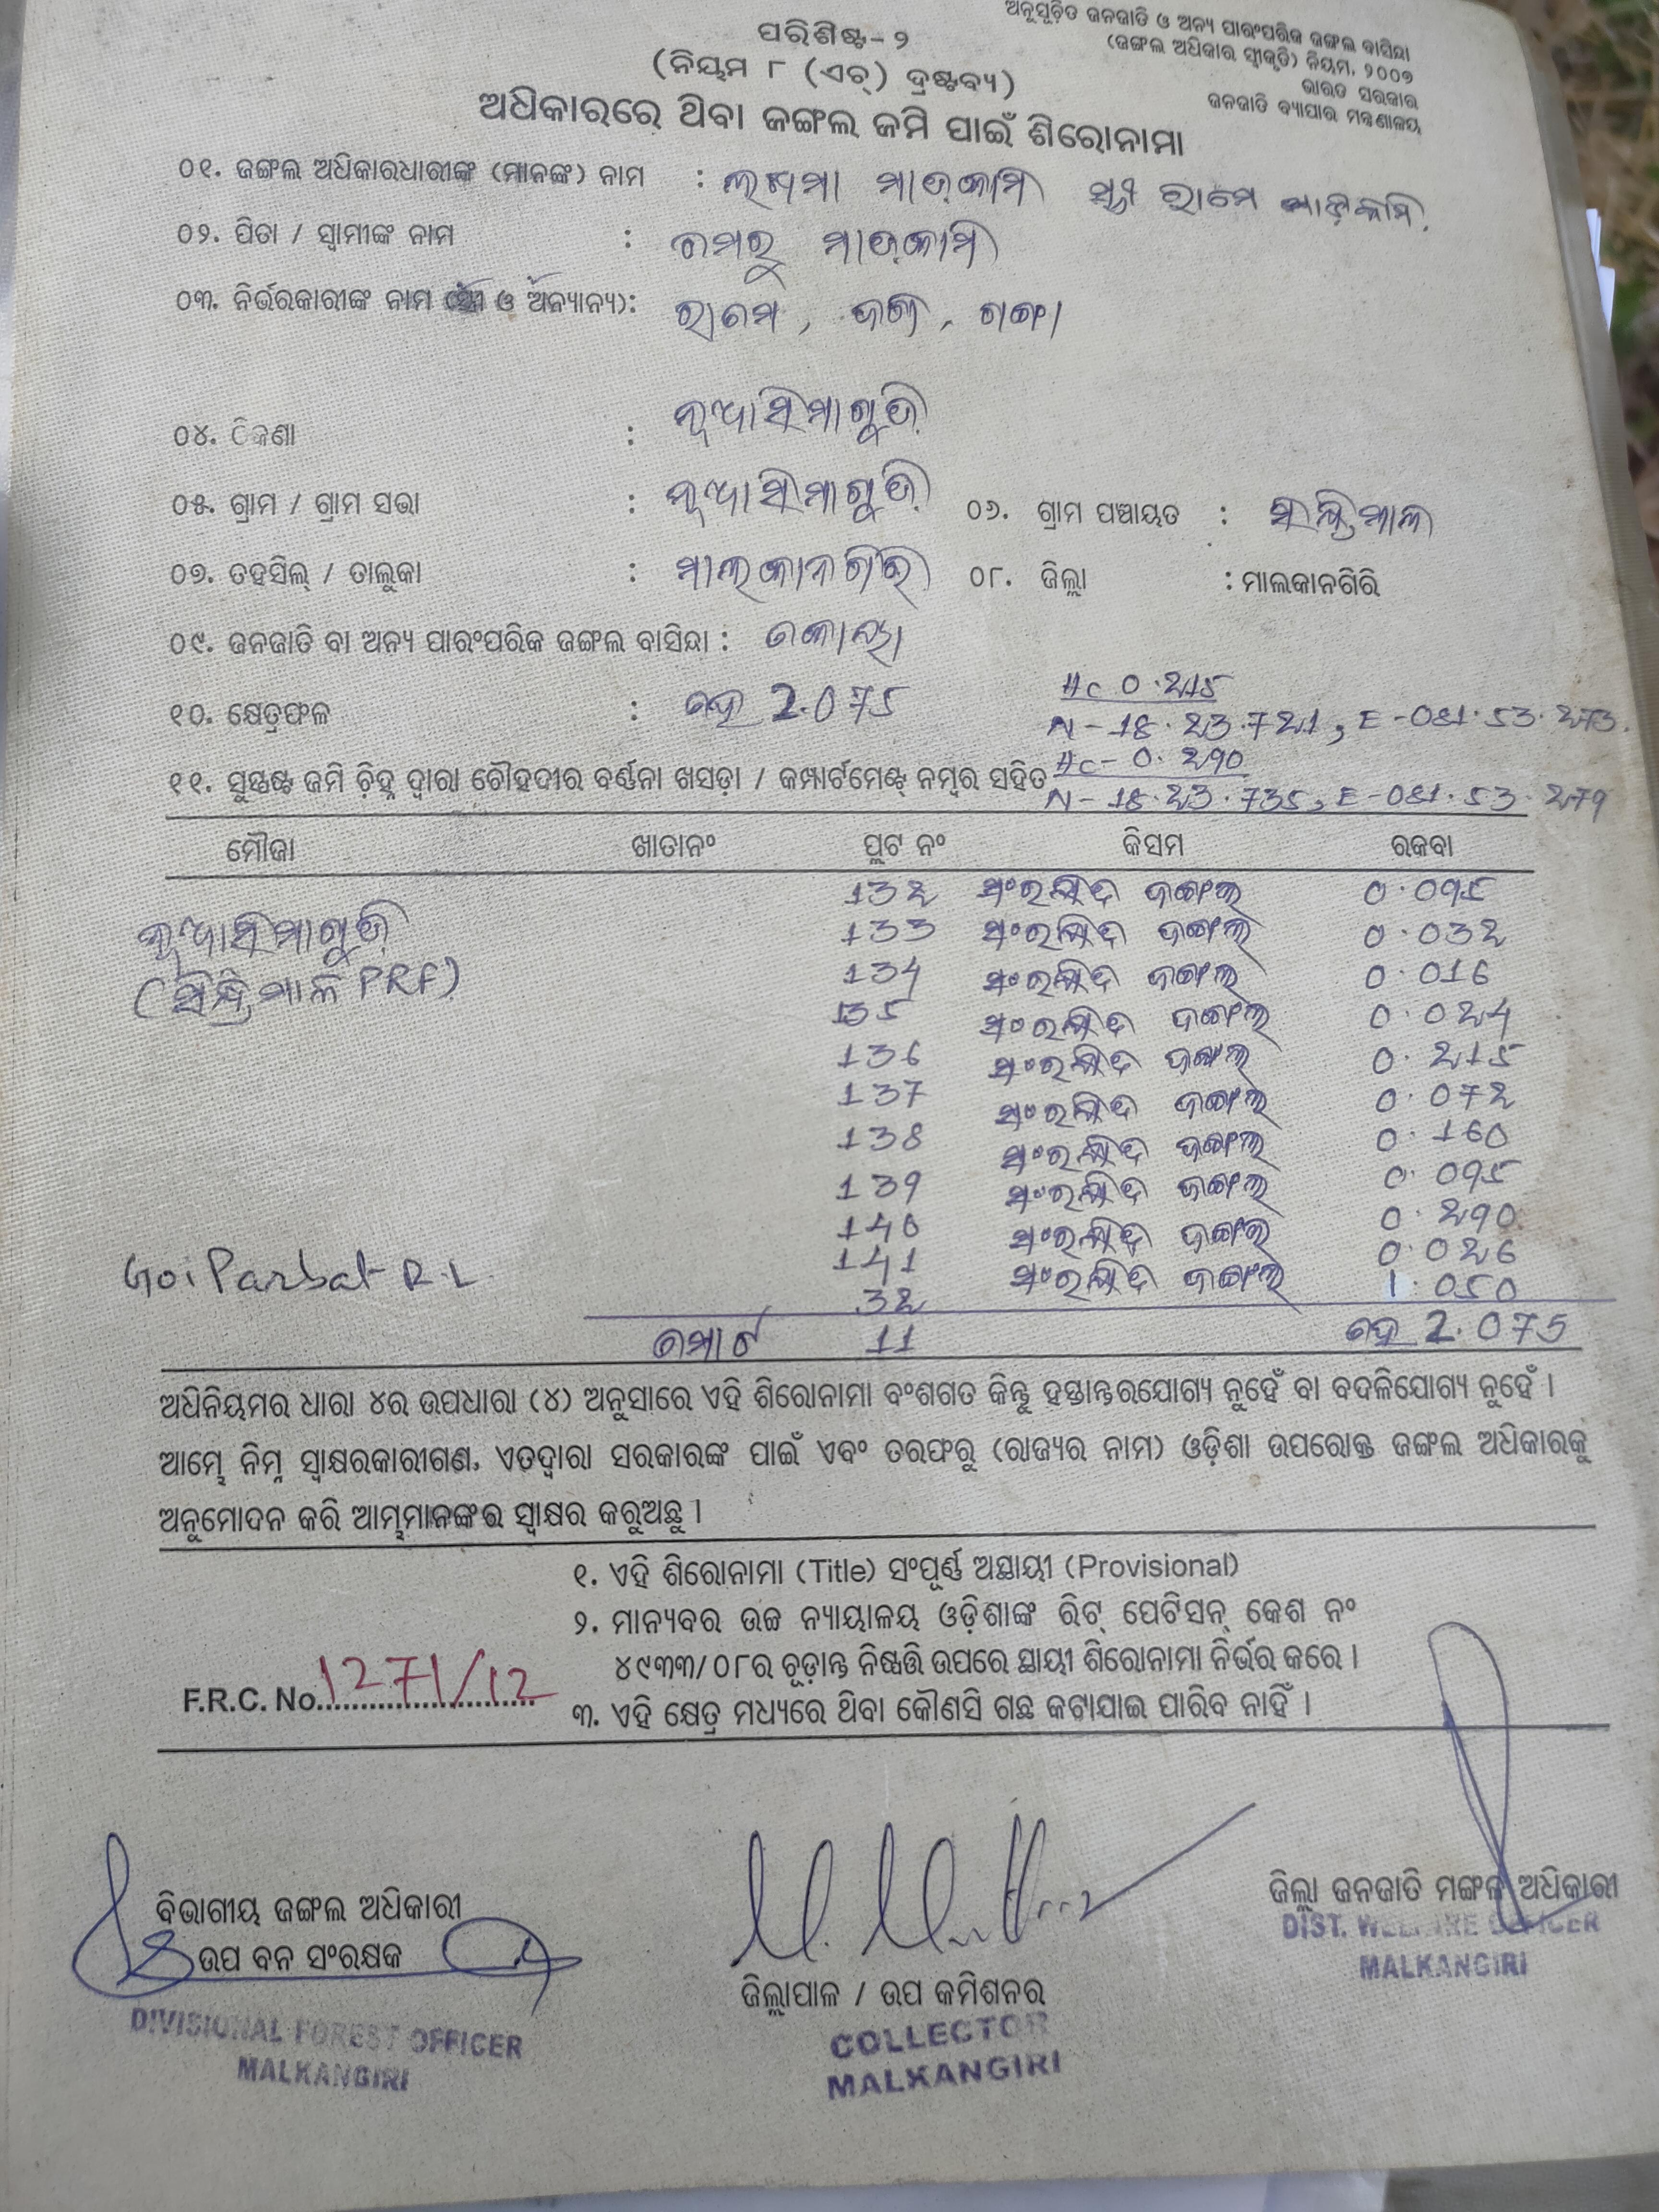 ପରିଶିଷ୍ଟ- ୨
(ନିୟମ ୮ (ଏଚ୍) ଦ୍ରଷ୍ଟବ୍ୟ)
ଅନୁସୂଚିତ ଜନଜାତି ଓ ଅନ୍ୟ ପାରଂପରିକ ଜଙ୍ଗଲ ବାସିନ୍ଦା
(ଜଙ୍ଗଲ ଅଧିକାର ସ୍ୱୀକୃତି) ନିୟମ, ୨୦୦୭
ଭାରତ ସରକାର
ଜନଜାତି ବ୍ୟାପାର ମନ୍ତ୍ରଣାଳୟ
ଅଧିକାରରେ ଥିବା ଜଙ୍ଗଲ ଜମି ପାଇଁ ଶିରୋନାମା
୦୧. ଜଙ୍ଗଲ ଅଧିକାରଧାରୀଙ୍କ (ମାନଙ୍କ) ନାମ : ଲଖମା ମାଡ଼କାମି ସ୍ତ୍ରୀ ରାମେ ମାଡ଼କାମି
୦୨. ପିତା / ସ୍ୱାମୀଙ୍କ ନାମ : ମାଡ଼କାମି
୦୩. ନିର୍ଭରକାରୀଙ୍କ ନାମ (ସ୍ତ୍ରୀ ଓ ଅନ୍ୟାନ୍ୟ): ରାମେ,
୦୪. ଠିକଣା : ନୂଆସିମାଗୁଡ଼ି
୦୫. ଗ୍ରାମ / ଗ୍ରାମ ସଭା : ନୂଆସିମାଗୁଡ଼ି ୦୬. ଗ୍ରାମ ପଞ୍ଚାୟତ :
୦୭. ତହସିଲ୍ / ତାଲୁକା : ମାଲକାନଗିରି ୦୮. ଜିଲ୍ଲା : ମାଲକାନଗିରି
୦୯. ଜନଜାତି ବା ଅନ୍ୟ ପାରଂପରିକ ଜଙ୍ଗଲ ବାସିନ୍ଦା : କୋୟା
Hc 0.215
୧୦. କ୍ଷେତ୍ରଫଳ : ହେ 2.075 N-18.23.721, E-081.53.273.
Hc-0.290
୧୧. ସୁସ୍ପଷ୍ଟ ଜମି ଚିହ୍ନ ଦ୍ୱାରା ଚୌହଦୀର ବର୍ଣ୍ଣନା ଖସଡ଼ା / କମ୍ପାର୍ଟମେଣ୍ଟ୍ ନମ୍ବର ସହିତ N-18.23.735, E-081.53.279
ମୌଜା ଖାତାନଂ ପ୍ଲଟ ନଂ କିସମ ରକବା
132 ସଂରକ୍ଷିତ ଜଙ୍ଗଲ 0.095
ନୂଆସିମାଗୁଡ଼ି 133 ସଂରକ୍ଷିତ ଜଙ୍ଗଲ 0.032
(PRF) 134 ସଂରକ୍ଷିତ ଜଙ୍ଗଲ 0.016
135 ସଂରକ୍ଷିତ ଜଙ୍ଗଲ 0.024
136 ସଂରକ୍ଷିତ ଜଙ୍ଗଲ 0.215
137 ସଂରକ୍ଷିତ ଜଙ୍ଗଲ 0.072
138 ସଂରକ୍ଷିତ ଜଙ୍ଗଲ 0.160
139 ସଂରକ୍ଷିତ ଜଙ୍ଗଲ 0.095
140 ସଂରକ୍ଷିତ ଜଙ୍ଗଲ 0.290
141 ସଂରକ୍ଷିତ ଜଙ୍ଗଲ 0.026
Goi Parbat R.L 32 1.050
ମୋଟ 11 ହେ 2.075
ଅଧିନିୟମର ଧାରା ୪ର ଉପଧାରା (୪) ଅନୁସାରେ ଏହି ଶିରୋନାମା ବଂଶଗତ କିନ୍ତୁ ହସ୍ତାନ୍ତରଯୋଗ୍ୟ ନୁହେଁ ବା ବଦଳିଯୋଗ୍ୟ ନୁହେଁ ।
ଆମ୍ଭେ ନିମ୍ନ ସ୍ୱାକ୍ଷରକାରୀଗଣ, ଏତଦ୍ୱାରା ସରକାରଙ୍କ ପାଇଁ ଏବଂ ତରଫରୁ (ରାଜ୍ୟର ନାମ) ଓଡ଼ିଶା ଉପରୋକ୍ତ ଜଙ୍ଗଲ ଅଧିକାରକୁ
ଅନୁମୋଦନ କରି ଆମ୍ଭମାନଙ୍କର ସ୍ୱାକ୍ଷର କରୁଅଛୁ ।
୧. ଏହି ଶିରୋନାମା (Title) ସଂପୂର୍ଣ୍ଣ ଅସ୍ଥାୟୀ (Provisional)
୨. ମାନ୍ୟବର ଉଚ୍ଚ ନ୍ୟାୟାଳୟ ଓଡ଼ିଶାଙ୍କ ରିଟ୍ ପେଟିସନ୍ କେଶ ନଂ
୪୯୩୩/୦୮ର ଚୂଡ଼ାନ୍ତ ନିଷ୍ପତ୍ତି ଉପରେ ସ୍ଥାୟୀ ଶିରୋନାମା ନିର୍ଭର କରେ ।
F.R.C. No. 1271/12
୩. ଏହି କ୍ଷେତ୍ର ମଧ୍ୟରେ ଥିବା କୌଣସି ଗଛ କଟାଯାଇ ପାରିବ ନାହିଁ ।
ବିଭାଗୀୟ ଜଙ୍ଗଲ ଅଧିକାରୀ
ଉପ ବନ ସଂରକ୍ଷକ
DIVISIONAL FOREST OFFICER
MALKANGIRI
ଜିଲ୍ଲାପାଳ / ଉପ କମିଶନର
COLLECTOR
MALKANGIRI
ଜିଲ୍ଲା ଜନଜାତି ମଙ୍ଗଳ ଅଧିକାରୀ
DIST. WELFARE OFFICER
MALKANGIRI